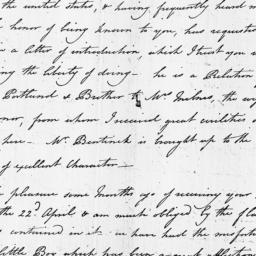 the united states, & having frequently heard m
honor of being known to you, has requeste
a letter of introduction, which I trust you w
ing the liberty of doing — he is a Relation
Portland & Brother to Mr. Milnes, the
nor, from whom I received great civilities
here — Mr. Bentinck is brought up to the
of excellent Character —
pleasure some Months ago of receiving your
the 22d April & am much obliged by the fla
contained in it — we have had the misfor
little Boy which has been